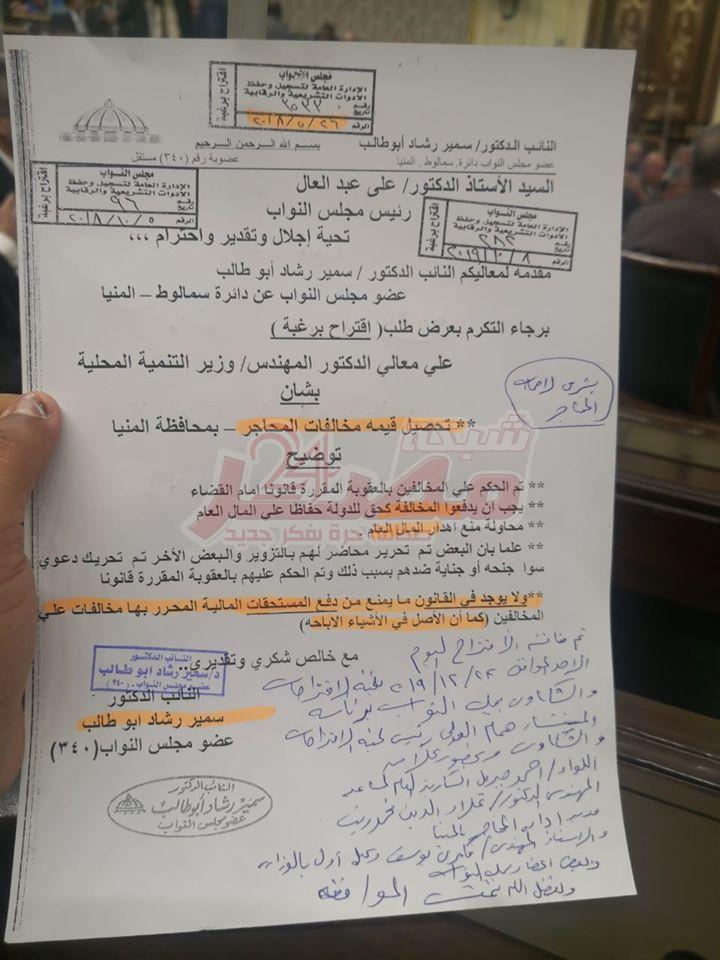 مجلس النواب
الإدارة العامة لتسجيل وحفظ
الادوات التشريعية والرقابية
رقم
تاريخ
الرقم ٢٠١٨/٥/٢٦
اقتراح برغبة
النائب الدكتور/ سمير رشاد أبوطالب
بسم الله الرحمن الرحيم
عضو مجلس النواب دائرة. سمالوط. المنيا
عضوية رقم (٣٤٠) مستقل
مجلس النواب
الإدارة العامة لتسجيل وحفظ
الادوات التشريعية والرقابية
رقم ٩٦
تاريخ
الرقم ٢٠١٨/١٠/٥
اقتراح برغبة
السيد الأستاذ الدكتور/ على عبد العال
رئيس مجلس النواب
تحية إجلال وتقدير واحترام ،،،
مجلس النواب
الإدارة العامة لتسجيل وحفظ
الادوات التشريعية والرقابية
رقم ٢٨٢
تاريخ
الرقم ٢٠١٩/١٠/٨
اقتراح برغبة
مقدمه لمعاليكم النائب الدكتور / سمير رشاد أبو طالب
عضو مجلس النواب عن دائرة سمالوط – المنيا
برجاء التكرم بعرض طلب( اقتراح برغبة )
علي معالي الدكتور المهندس/ وزير التنمية المحلية
بشان
المحاجر
** تحصيل قيمه مخالفات المحاجر – بمحافظة المنيا
توضيح
شبكة
مصر 24
صحافة حرة بفكر جديد
** تم الحكم علي المخالفين بالعقوبة المقررة قانونا امام القضاء
** يجب ان يدفعوا المخالفة كحق للدولة حفاظا علي المال العام
** محاولة منع اهدار المال العام .
** علما بان البعض تم تحرير محاضر لهم بالتزوير والبعض الأخر تم تحريك دعوي
سوا جنحه أو جناية ضدهم بسبب ذلك وتم الحكم عليهم بالعقوبة المقررة قانونا
**ولا يوجد في القانون ما يمنع من دفع المستحقات المالية المحرر بها مخالفات علي
المخالفين (كما أن الأصل في الأشياء الاباحه)
مع خالص شكري وتقديري..
النائب الدكتور
د/سمير رشاد أبو طالب
عضو مجلس النواب - (٣٤٠)
النائب الدكتور
سمير رشاد ابو طالب
عضو مجلس النواب(٣٤٠)
النائب الدكتور
سمير رشاد أبوطالب
عضو مجلس النواب
تم مناقشة الاقتراح ليوم
الاحد الموافق ٢٠١٩/١٢/٢٢ لجنة الاقتراحات
والشكاوى بمجلس النواب برئاسة
المستشار همام العادلى رئيس لجنة الاقتراحات
والشكاوى وبحضور كلا من
اللواء/ احمد جبريل
المهندس الدكتور/ علاء الدين محمد
مدير إدارة المحاجر بالمنيا
والاستاذ المهندس/ يوسف وكيل أول بالوزارة
وبعض اعضاء مجلس النواب
وبفضل الله تمت الموافقه